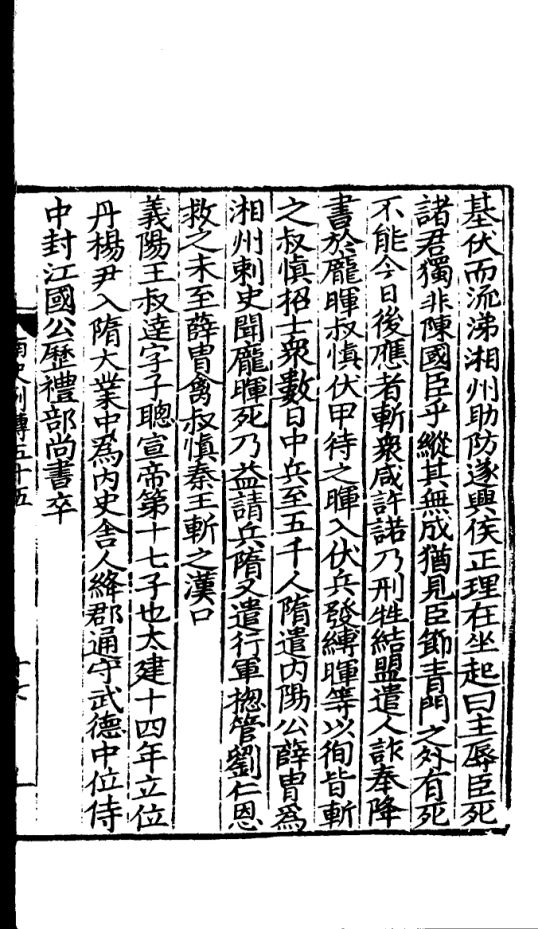 基伏而流涕湘州助防遂興侯正理在坐起曰主辱臣死
諸君獨非陳國臣乎縱其無成猶見臣節青門之外有死
不能今日後應者斬衆咸許諾乃刑牲結盟遣人詐奉降
書於龐暉叔慎伏甲待之暉入伏兵發縛暉等以徇皆斬
之叔慎招士衆數日中兵至五千人隋遣内陽公薛胄爲
湘州刺史聞龐暉死乃益請兵隋又遣行軍揔管劉仁恩
救之未至薛胄禽叔慎秦王斬之漢口
義陽王叔達字子聰宣帝第十七子也太建十四年立位
丹楊尹入隋大業中爲内史舍人絳郡通守武德中位侍
中封江國公歷禮部尚書卒
南史列傳五十五